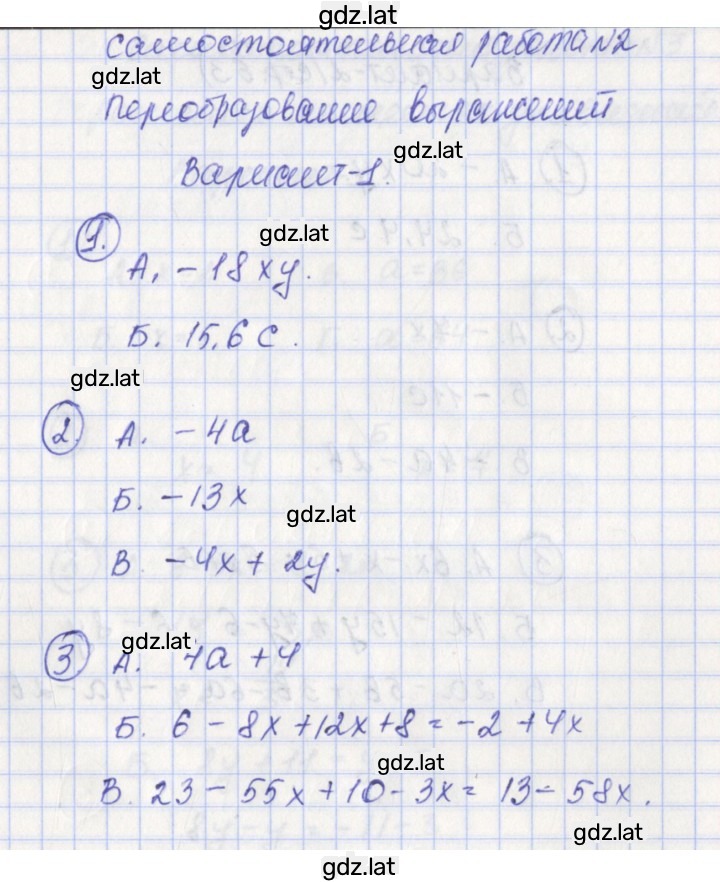 gdz.lat
Самостоятельная работа №2
gdz.lat
Переобразование выражений
gdz.lat
Вариант-1.
1.
gdz.lat
А. -18xy.
Б. 15,6c.
gdz.lat
2. А. -4a
Б. -13x
gdz.lat
В. -4x + 2y.
gdz.lat
3 А. 7a + 4
Б. 6 - 8x + 12x + 8 = -2 + 4x
gdz.lat
В. 23 - 55x + 10 - 3x = 13 - 58x.
gdz.lat
gdz.lat